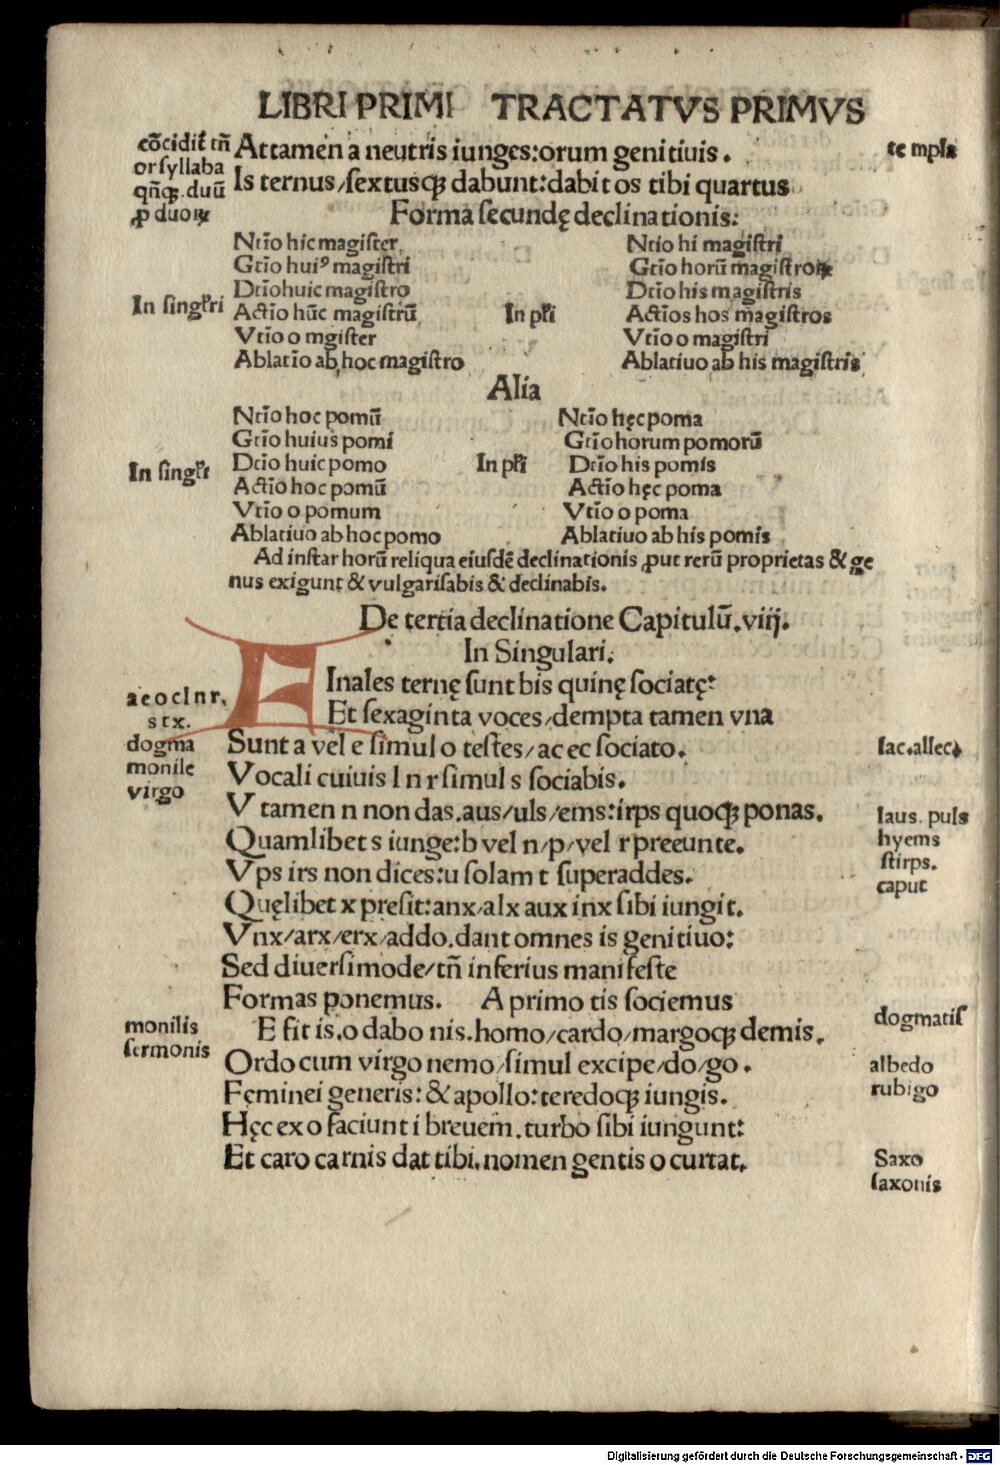 LIBRI PRIMI TRACTATVS PRIMVS
cõcidit tñ
or syllaba
qñqꝫ. duũ
ꝓ duoꝝ
Attamen a neutris iunges:orum genitiuis.
te mpla
Is ternus/sextusqꝫ dabunt:dabit os tibi quartus
Forma secundę declinationis:
In singĺri
Ntĩo hic magister
Gtĩo huiꝰ magistri
Dtĩo huic magistro
Actĩo hũc magistrũ
Vtĩo o mgister
Ablatĩo ab hoc magistro
In pĺri
Ntĩo hi magistri
Gtĩo horũ magistroꝝ
Dtĩo his magistris
Actĩos hos magistros
Vtĩo o magistri
Ablatiuo ab his magistris
Alia
In singĺr
Ntĩo hoc pomũ
Gtĩo huius pomi
Dtĩo huic pomo
Actĩo hoc pomũ
Vtĩo o pomum
Ablatiuo ab hoc pomo
In pĺri
Ntĩo hęc poma
Gtĩo horum pomorũ
Dtĩo his pomis
Actĩo hęc poma
Vtĩo o poma
Ablatiuo ab his pomis
Ad instar horũ reliqua eiusdẽ declinationis ꝓut rerũ proprietas & ge
nus exigunt & vulgarisabis & declinabis.
De tertia declinatione Capitulũ. viij.
In Singulari.
Finales ternę sunt bis quinę sociatę:
a e o c l n r.
s t x.
Et sexaginta voces/dempta tamen vna
dogma
monile
virgo
Sunt a vel e simul o testes/ac ec sociato.
lac.allec.
Vocali cuiuis l n r simul s sociabis.
V tamen n non das.aus/uls/ems:irps quoqꝫ ponas.
laus. puls
hyems
stirps.
caput
Quamlibet s iunge:b vel n/p/vel r preeunte.
Vps irs non dices:u solam t superaddes.
Quęlibet x presit:anx/alx aux inx sibi iungit.
Vnx/arx/erx/addo.dant omnes is genitiuo:
Sed diuersimode/tñ inferius manifeste
Formas ponemus. A primo tis sociemus
dogmatis
monilis
sermonis
E fit is.o dabo nis.homo/cardo/margoqꝫ demis.
Ordo cum virgo nemo/simul excipe/do/go.
albedo
rubigo
Fęminei generis:& apollo:teredoqꝫ iungis.
Hęc ex o faciunt i breuem.turbo sibi iungunt:
Et caro carnis dat tibi.nomen gentis o curtat.
Saxo
saxonis
Digitalisierung gefördert durch die Deutsche Forschungsgemeinschaft - DFG